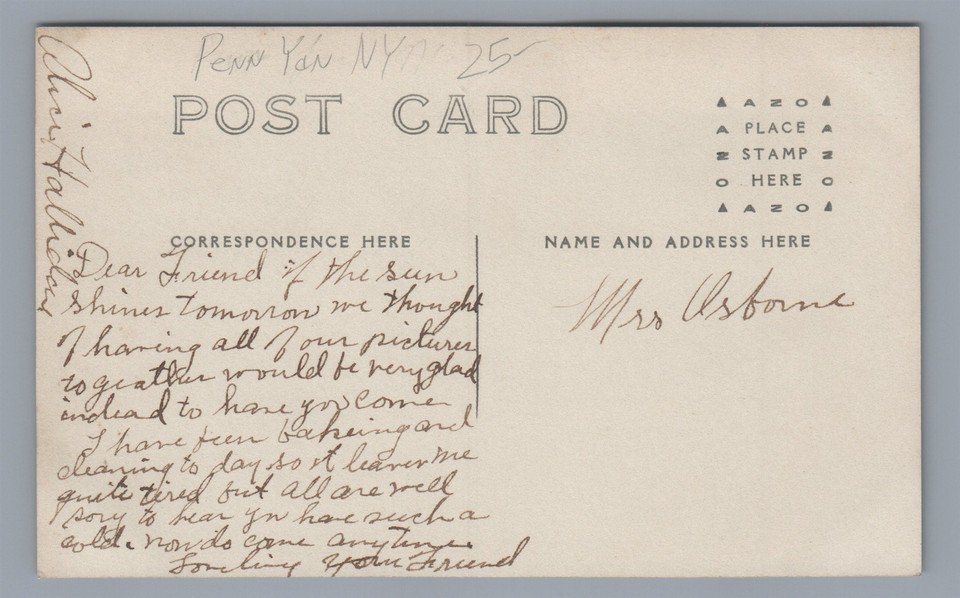 Penn Yan NY 25-
POST CARD
AZO
A PLACE A
Z STAMP Z
O HERE O
AZO
CORRESPONDENCE HERE
NAME AND ADDRESS HERE
Dear Friend if the sun
shines tomorrow we thought
of having all of our pictures
to geather would be very glad
indead to have you come
I have been bakeing and
cleaning to day so it leaves me
quite tired but all are well
sory to hear you have such a
cold. now do come anytime.
Loveling Your Friend
Halliday
Mrs Osborne